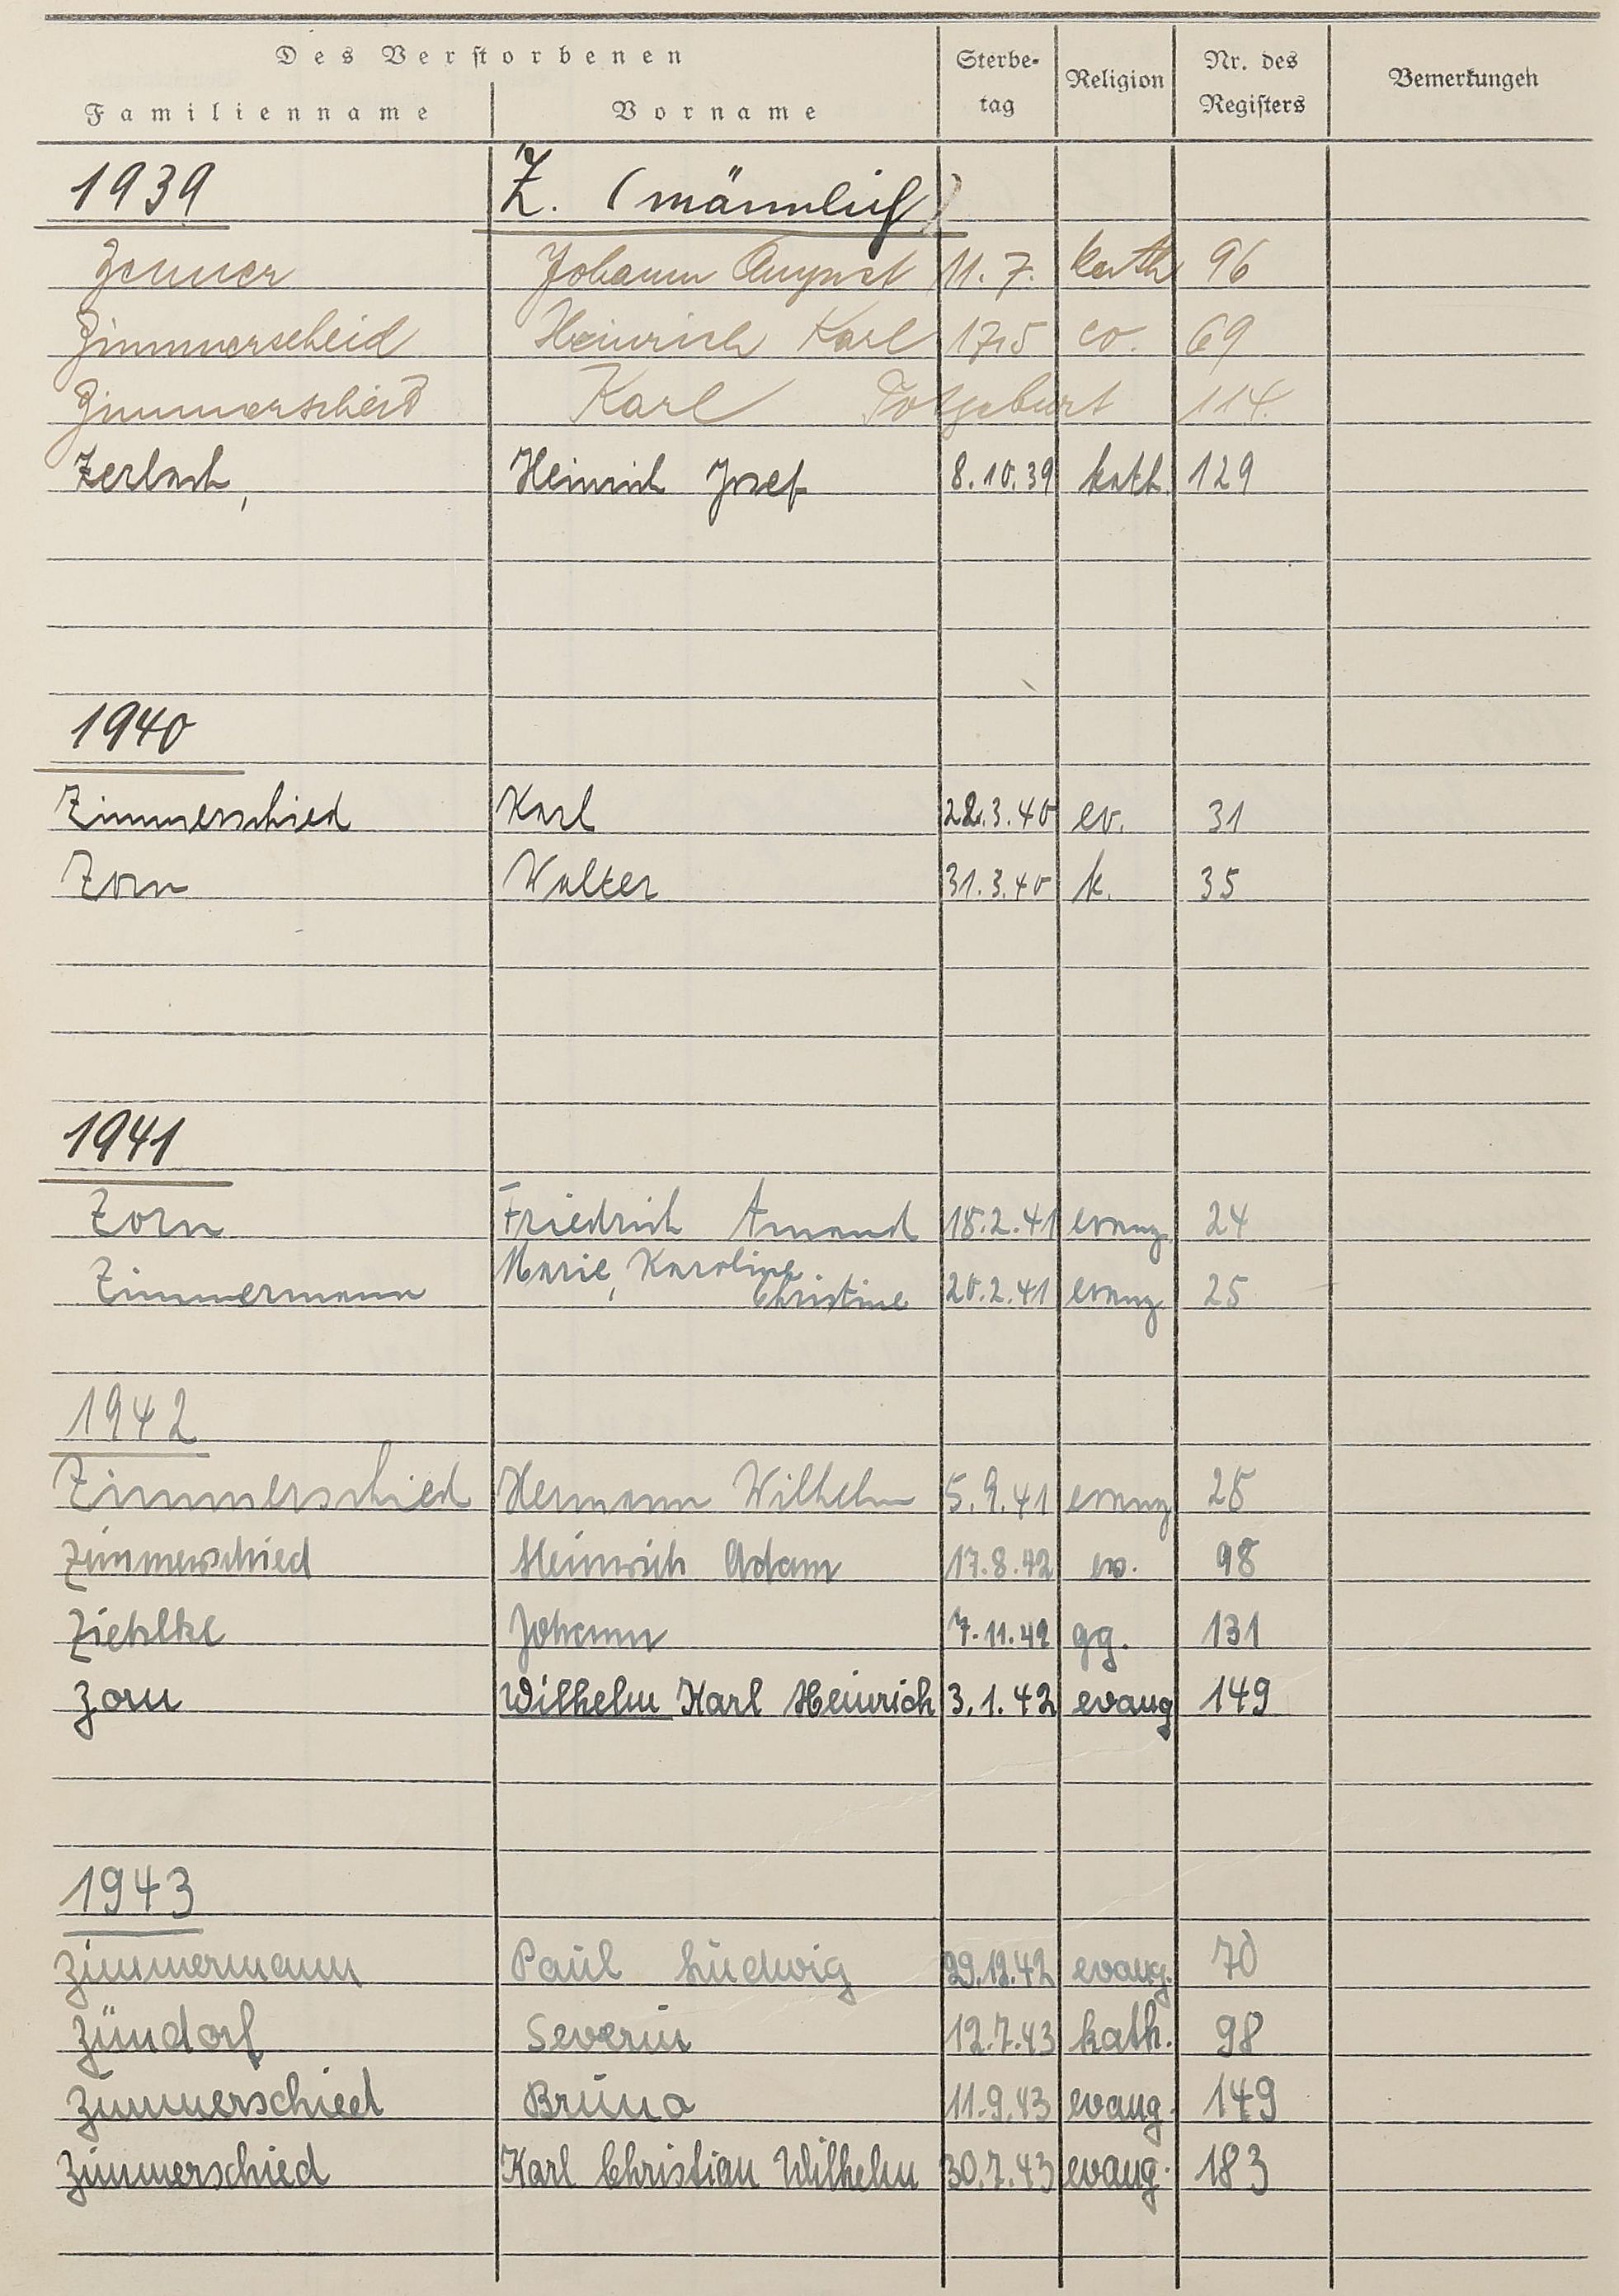 Des Verstorbenen
Familienname Vorname Sterbe-tag Religion Nr. des Registers Bemerkungen
1939 Z. (männlich)
Zenner Johann August 11.7. kath 96
Zimmerscheid Heinrich Karl 17.5 ev. 69
Zimmerscheid Karl Totgeburt 114.
Zerbach, Heinrich Josef 8.10.39 kath. 129
1940
Zimmerschied Karl 28.3.40 ev. 31
Zorn Walter 31.3.40 k. 35
1941
Zorn Friedrich Amand 18.2.41 evang. 24
Zimmermann Marie, Karoline Christine 20.2.41 evang 25
1942
Zimmerschied Hermann Wilhelm 5.9.41 evang 28
Zimmerschied Heinrich Adam 17.8.42 ev. 98
Ziehlke Johann 7.11.42 gg. 131
Zorn Wilhelm Karl Heinrich 3.1.42 evang 149
1943
Zimmermann Paul Ludwig 29.12.42 evang. 70
Zündorf Severin 12.7.43 kath. 98
Zimmerschied Bruno 11.9.43 evang. 149
Zimmerschied Karl Christian Wilhelm 30.7.43 evang. 183